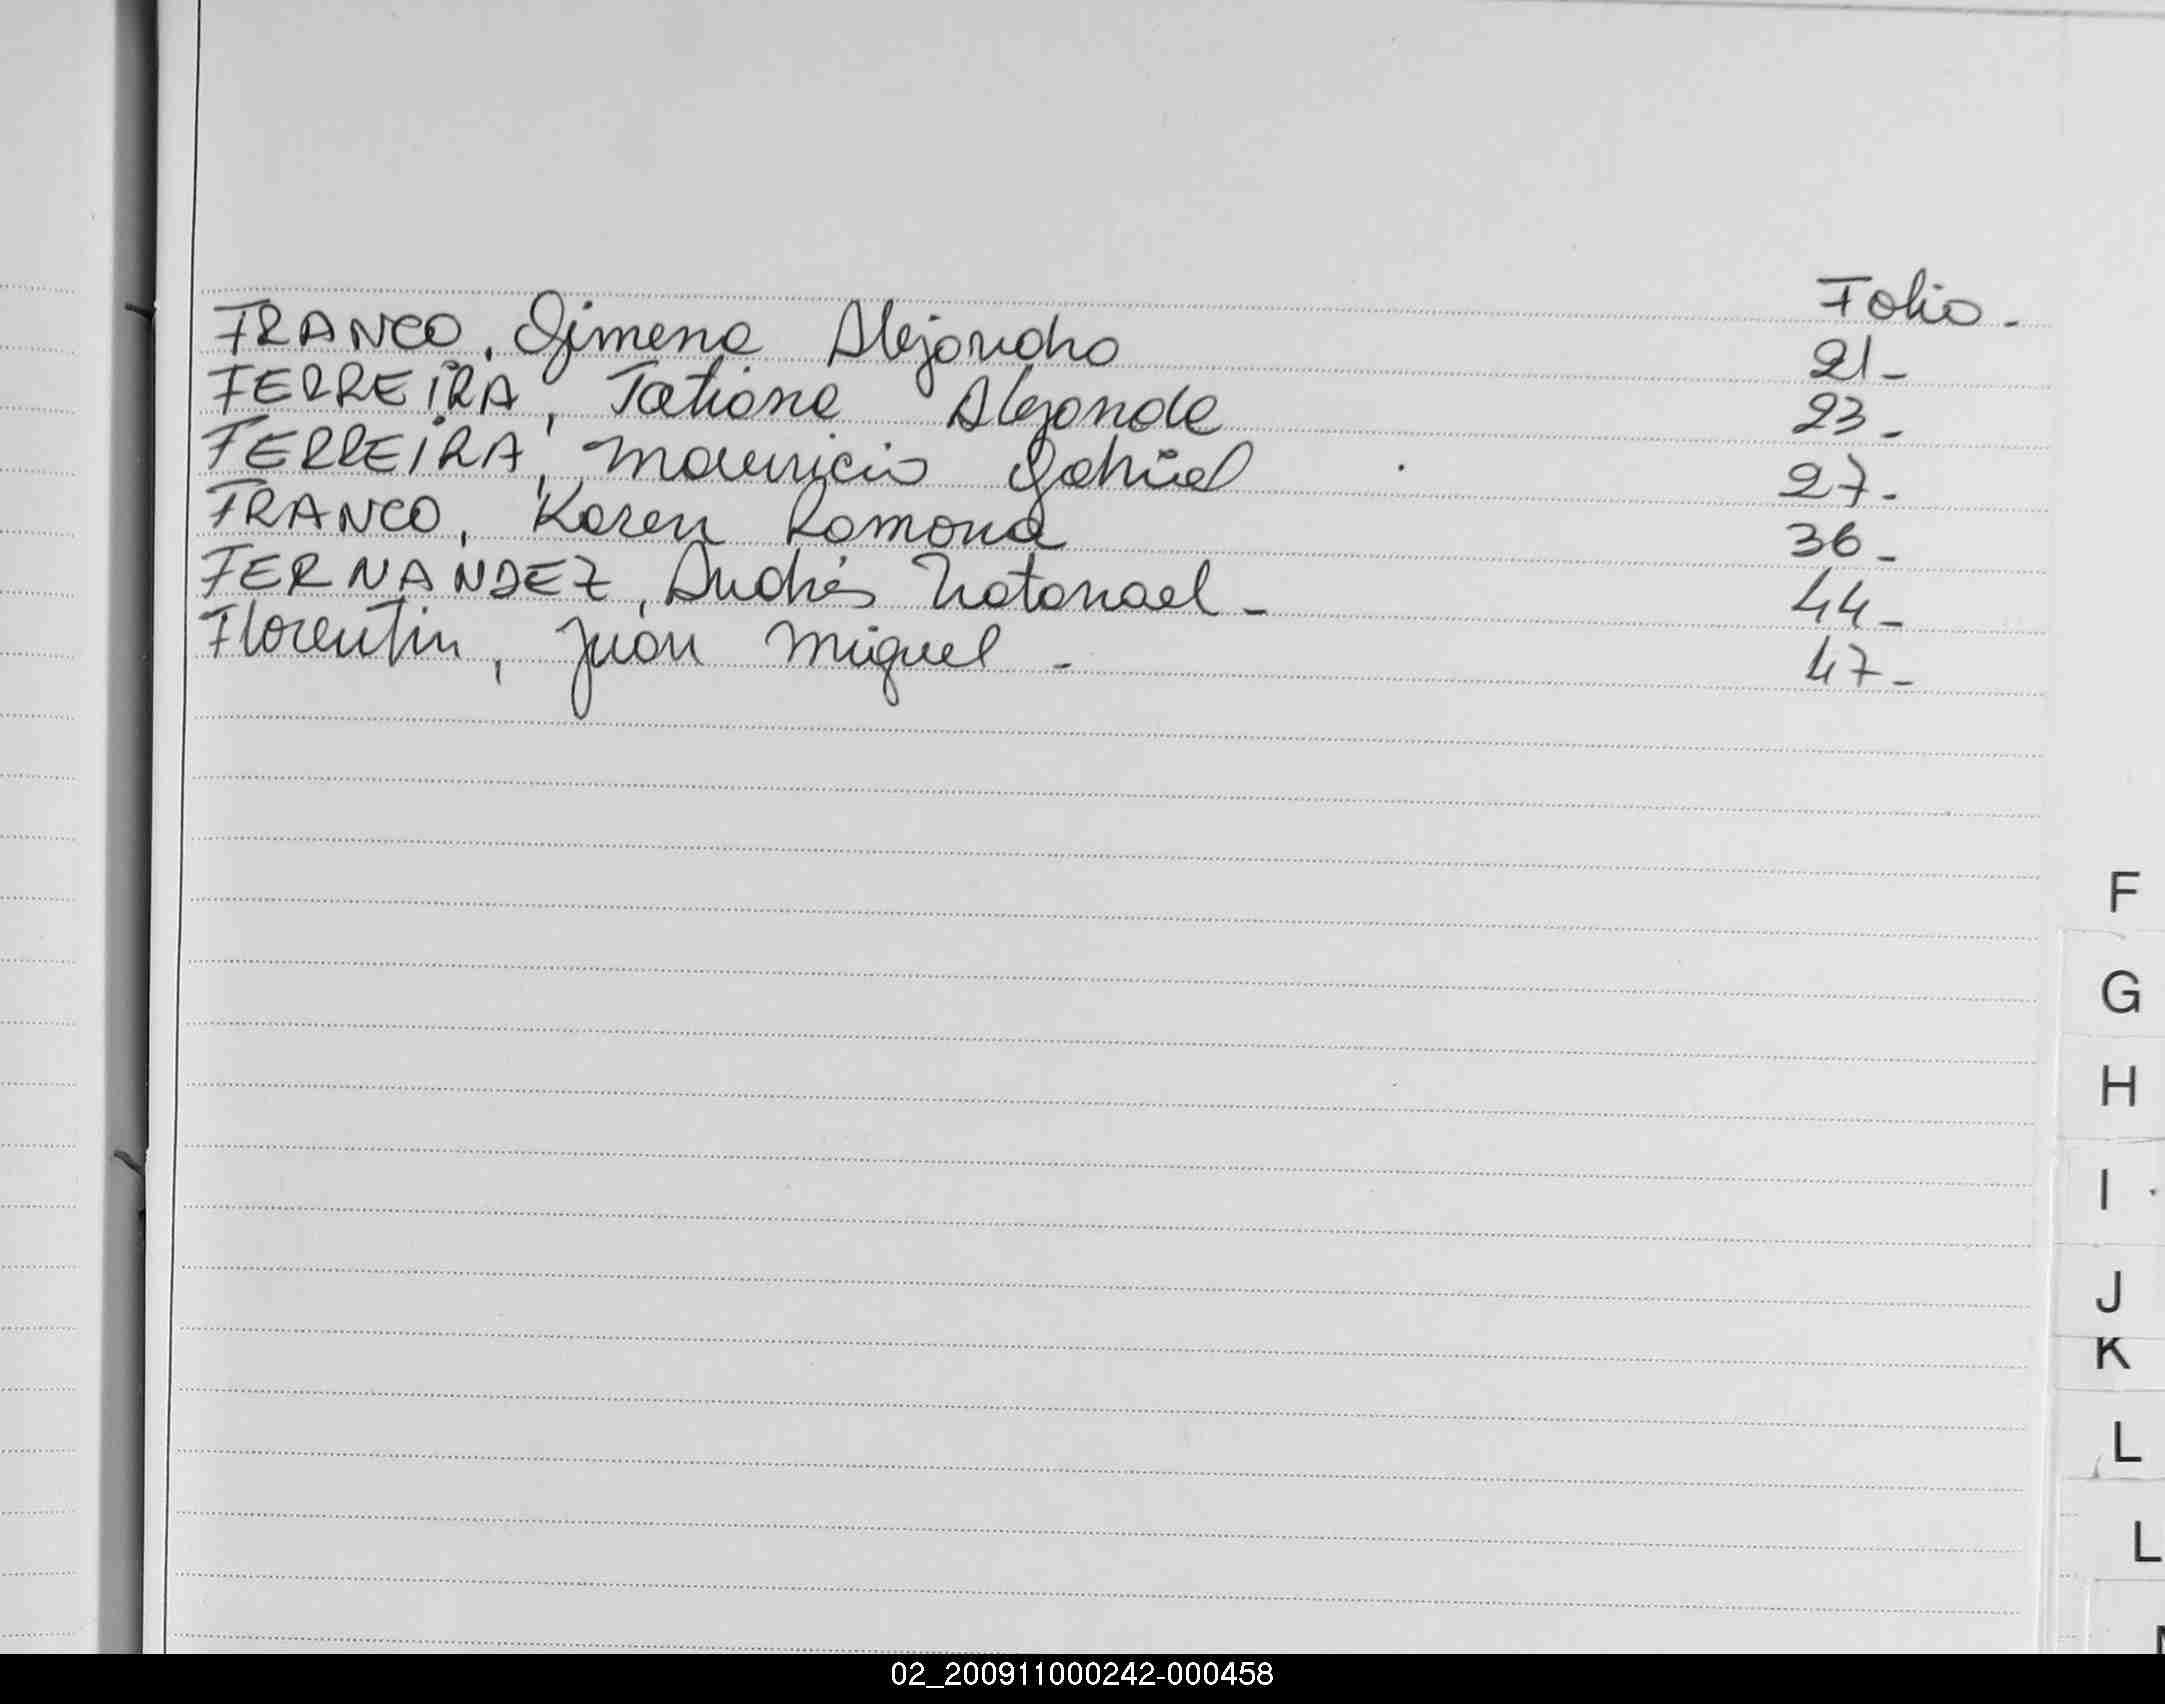 Folio.
FRANCO, Gimena Alejandra 21-
FERREIRA, Tatiana Alejanda 23-
FERREIRA, Mauricio Gabriel 27-
FRANCO, Karen Ramona 36-
FERNANDEZ, Andrés Natanael- 44-
Florentin, Juan Miguel - 47-
F
G
H
I
J
K
L
L
02_200911000242-000458